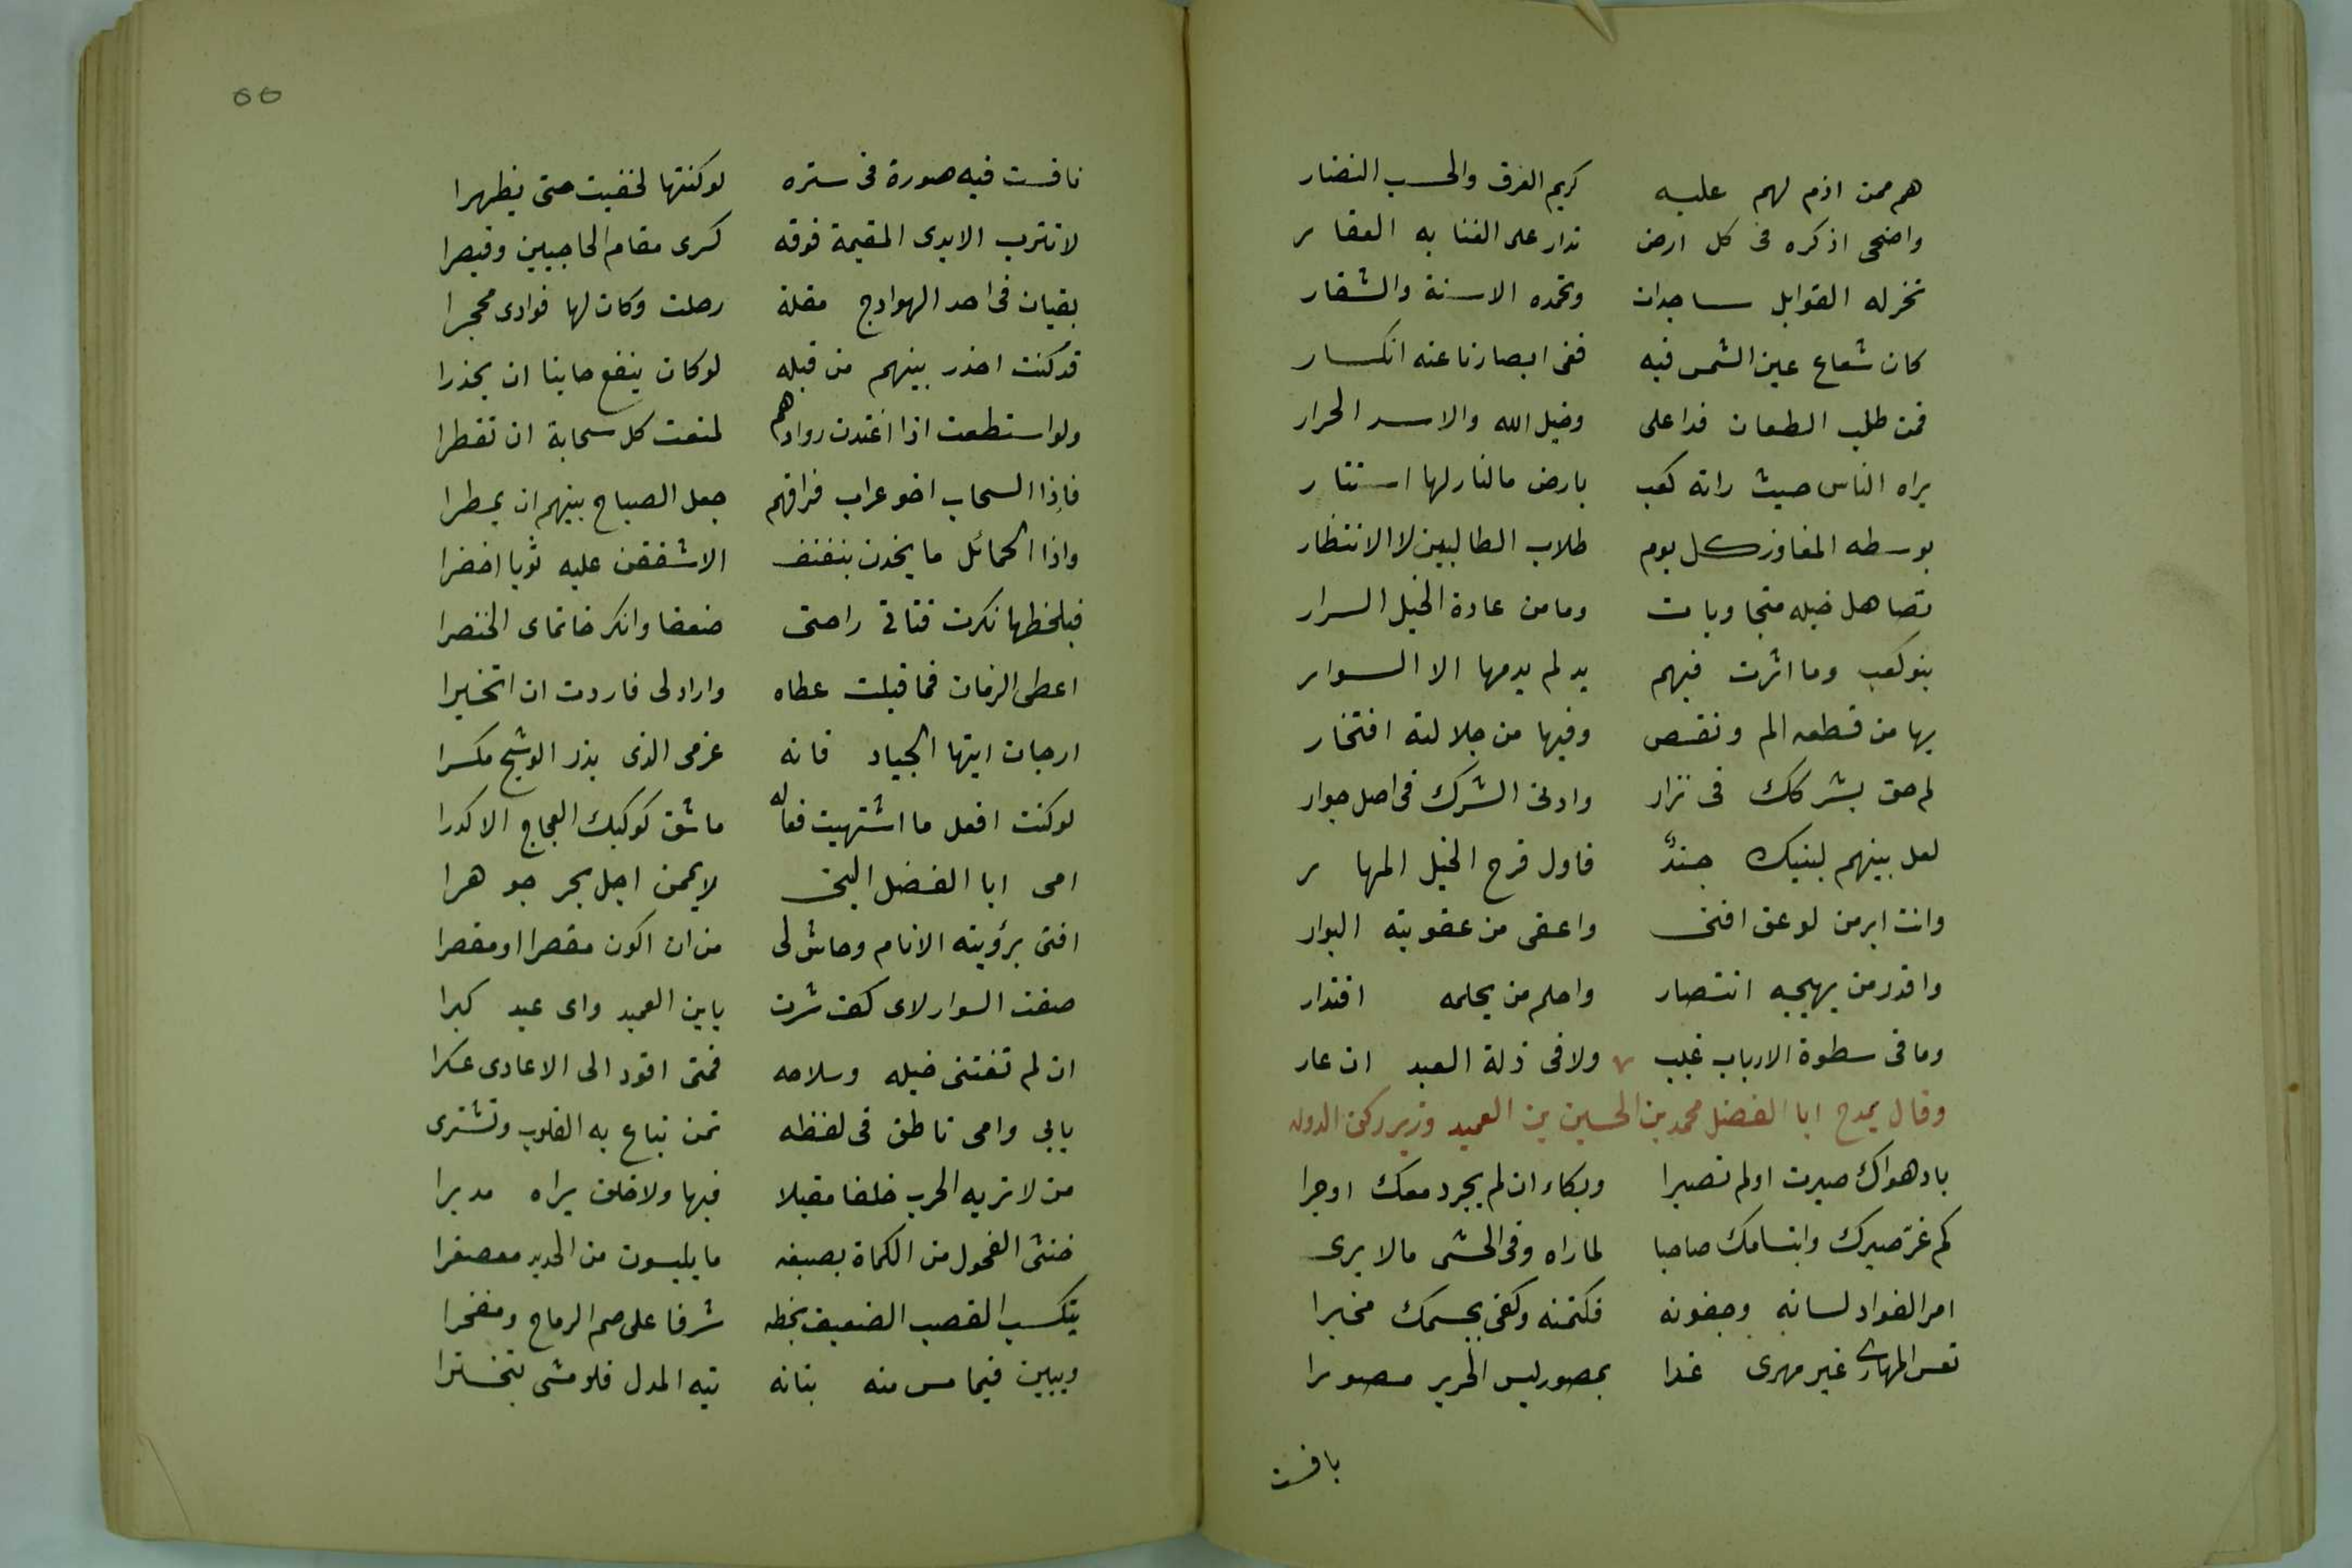 هم ممن اذم لهم عليه كريم العرق والحسب النضار
واضحى اذكره فى كل ارض تدار على الغنا به العقار
تخر له القوابل ساجدات وتحمده الاسنة والشفار
كان شعاع عين الشمس فيه ففى ابصارنا عنه انكسار
فمن طلب الطعان فذا على وخيل الله والاسد الحرار
يراه الناس حيث راته كعب بارض ما لنازلها استتار
يوسطه المفاوز كل يوم طلاب الطالبين لا الانتظار
تصاهل خيله متجاوبات وما من عادة الخيل السرار
بنو كعب وما اثرت فيهم يد لم يدمها الا السوار
بها من قطعه الم ونقص وفيها من جلالته افتخار
لهم حق بشركك فى نزار وادنى الشرك فى اصل جوار
لعل بينهم لبنيك جندٌ فاول قرح الخيل المهار
وانت ابر من لو عق افنى واعفى من عقوبته البوار
واقدر من يهيجه انتصار واحلم من يحلمه اقتدار
وما فى سطوة الارباب عيب ولا فى ذلة العبد ان عار
وقال يمدح ابا الفضل محمد بن الحسين بن العميد وزير ركن الدوله
باد هواك صبرت او لم تصبرا وبكاء ان لم يجر دمعك او جرا
كم غرّ صبرك وابتسامك صاحبا لما راه وفى الحشى مالا يرى
امر الفواد لسانه وجفونه فكتمنه وكفى بجسمك مخبرا
تعس المهارى غير مهرى غدا بمصور لبس الحرير مصورا
نافست
٥٥
نافست فيه صورة فى ستره لو كنتها لخفيت حتى يظهرا
لا تترب الايدى المقيمة فوقه كسرى مقام الحاجبين وقيصرا
يقيان فى احد الهوادج مقلة رحلت وكان لها فوادى محجرا
قد كنت احذر بينهم من قبله لو كان ينفع حاينا ان يحذرا
ولو استطعت اذا اغتدت روادهم لمنعت كل سحابة ان تقطرا
فاذا السحاب اخو غراب فراقهم جعل الصياح بينهم ان يمطرا
واذا الحمائل ما يخدن بنفنف الا شققن عليه ثوبا اخضرا
فبلحظها نكرت قناتى راحتى ضعفا وانكر خاتماى الخنصرا
اعطى الزمان فما قبلت عطاه واراد لى فاردت ان اتخيرا
ارجان ايتها الجياد فانه عزمى الذى يذر الوشيج مكسرا
لو كنت افعل ما اشتهيت فعاله ما شق كوكبك العجاج الاكدرا
امى ابا الفضل اليتى لايممن اجل بحر جوهرا
افتى برؤيته الانام وحاش لى من ان اكون مقصرا او مقصرا
صغت السوار لاى كف شرت يابن العميد واى عبد كبرا
ان لم تغثنى خيله وسلاحه فمتى اقود الى الاعادى عسكرا
يابى وامى ناطق فى لفظه ثمن تباع به القلوب وتشترى
من لا تريه الحرب خلقا مقبلا فيها ولا خلق يراه مدبرا
خنثى الفحول من الكماة بصبغه ما يلبسون من الحديد معصفرا
يتكسب القصب الضعيف بخطه شرفا على صم الرماح ومفخرا
ويبين فيما مس منه بنانه تيه المدل فلو مشى لتبخترا